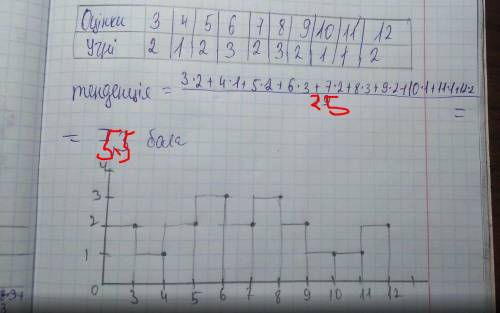 Оцінки 3 4 5 6 7 8 9 10 11 12
Учні 2 1 2 3 2 3 2 1 1 2
тенденція = 3·2+4·1+5·2+6·3+7·2+8·3+9·2+10·1+11·1+12·2
25
=
= бала
4
3
2
1
0 3 4 5 6 7 8 9 10 11 12